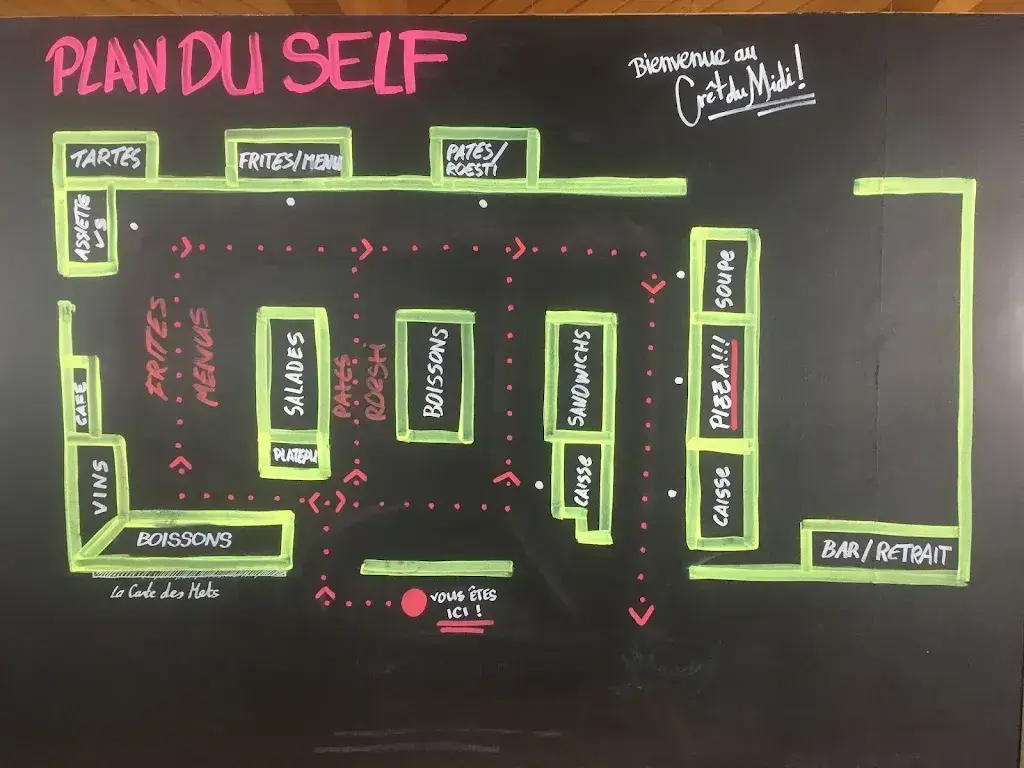 PLAN DU SELF
Bienvenue au
Crêt du Midi!
TARTES
FRITES/MENU
PATES/
ROESTI
ASSIETTE
SOUPE
FRITES
MENUS
SALADES
PLATEAU
PATES
ROESTI
BOISSONS
SANDWICHS
CAISSE
PIZZA!!!
CAISSE
CAFE
VINS
BOISSONS
BAR/RETRAIT
La Carte des Mets
VOUS ÊTES
ICI !